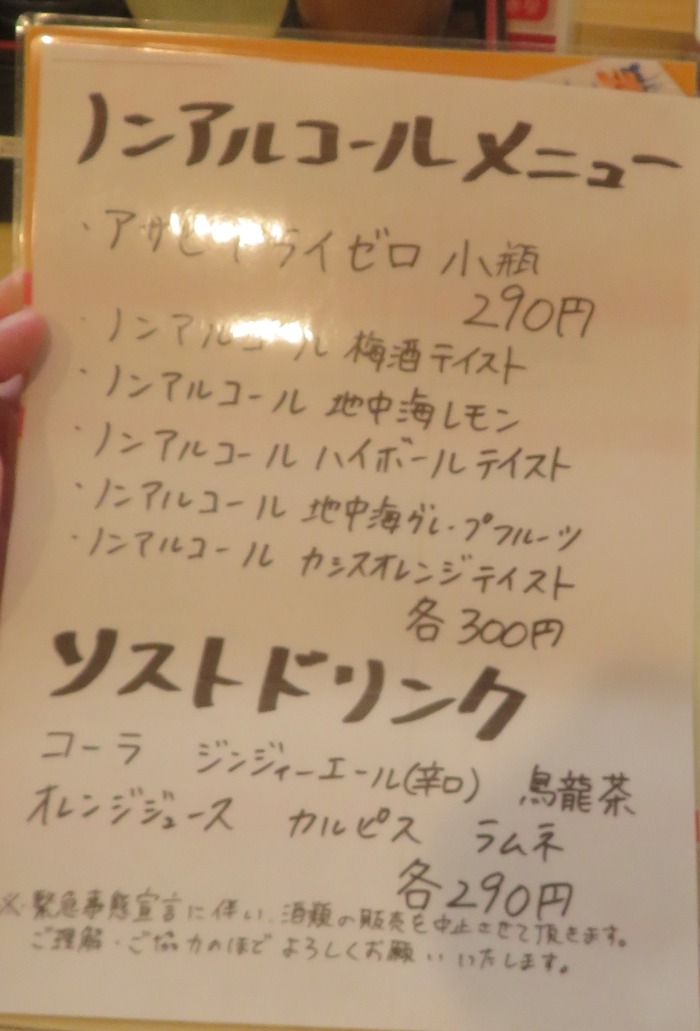 ノンアルコールメニュー
・アサヒドライゼロ 小瓶
290円
・ノンアルコール 梅酒テイスト
・ノンアルコール 地中海レモン
・ノンアルコール ハイボールテイスト
・ノンアルコール 地中海グレープフルーツ
・ノンアルコール カシスオレンジテイスト
各300円
ソストドリンク
コーラ ジンジャーエール(辛口) 烏龍茶
オレンジジュース カルピス ラムネ
各290円
※緊急事態宣言に伴い、酒類の販売を中止させて頂きます。
ご理解・ご協力のほどよろしくお願いいたします。